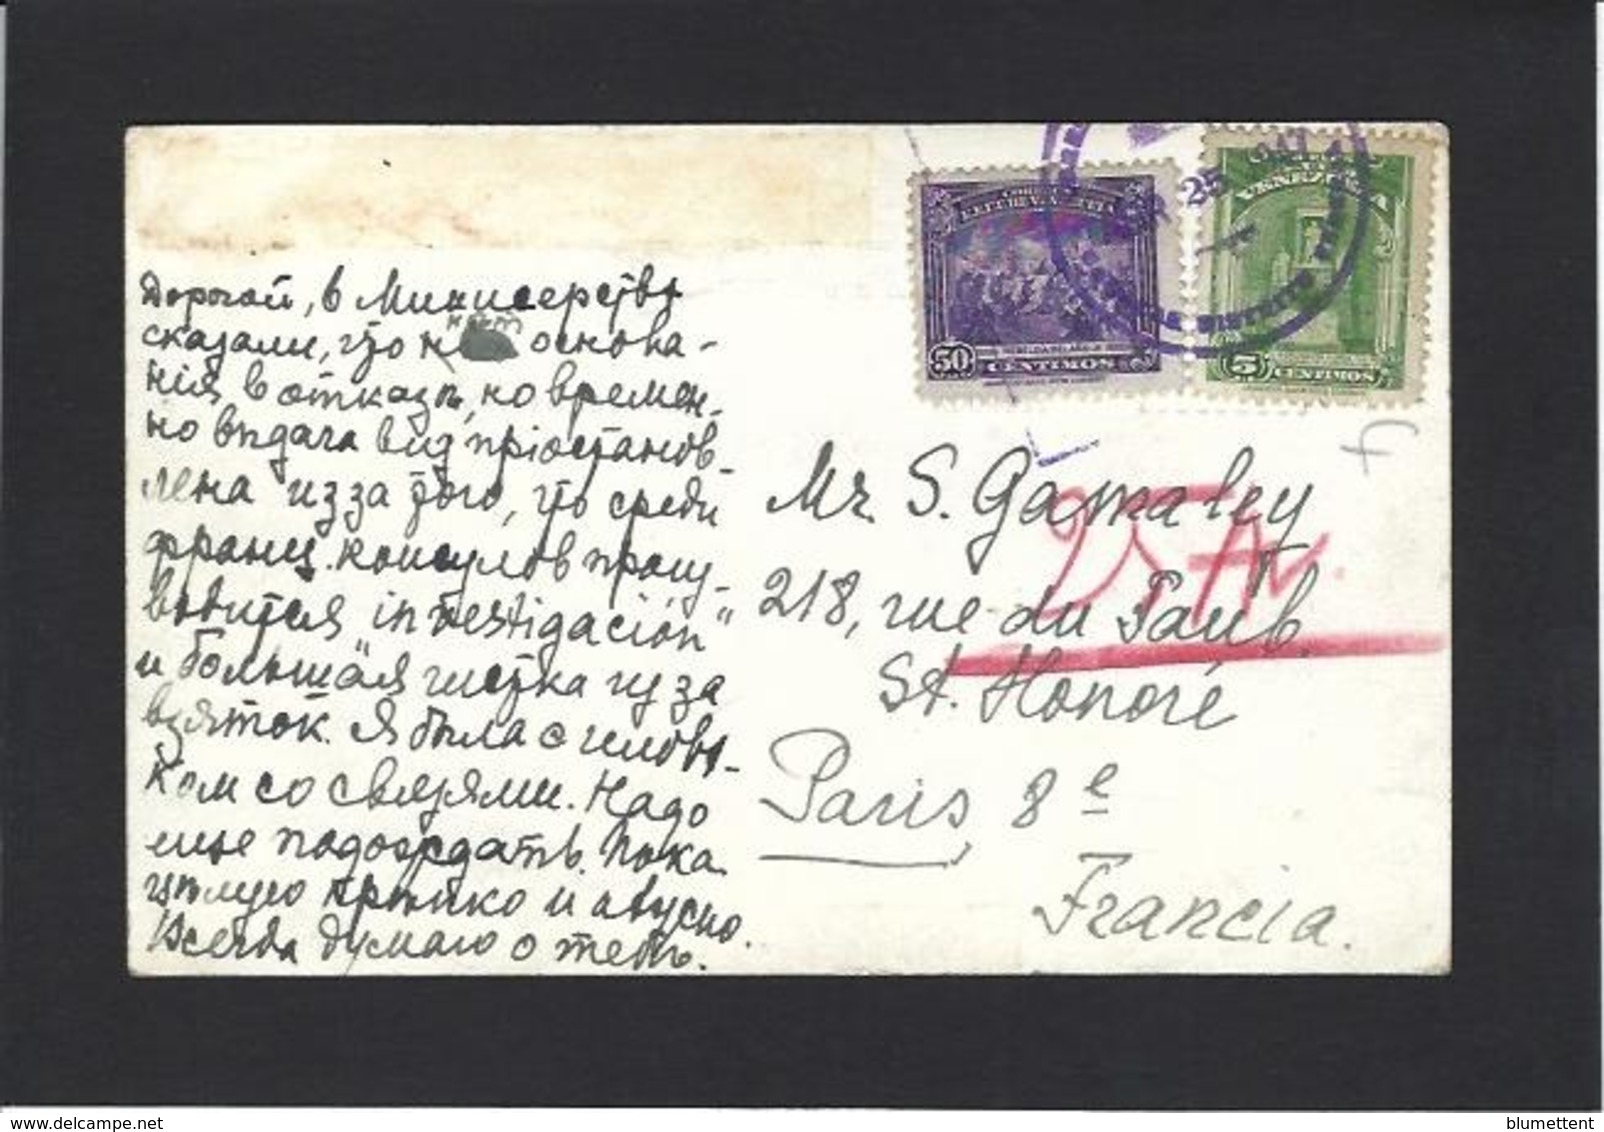 Дорогой, в Министерствѣ
сказали, что нѣт основа-
нія в отказѣ, но времен-
но выдача виз пріостанов-
лена из за того, что среди
франц. консулов произ-
водится „investigación"
и большая чистка из за
взяток. Я была с человѣ-
ком со связями. Надо
еще подождать. Пока
цѣлую крѣпко и вкусно.
Всегда думаю о тебѣ.
CORREOS
VENEZUELA
25
50 CENTIMOS
5 CENTIMOS
Mr. S. Gamaley
25 Av.
218, rue du Faub.
St. Honoré
Paris 8e
Francia.
blumettent